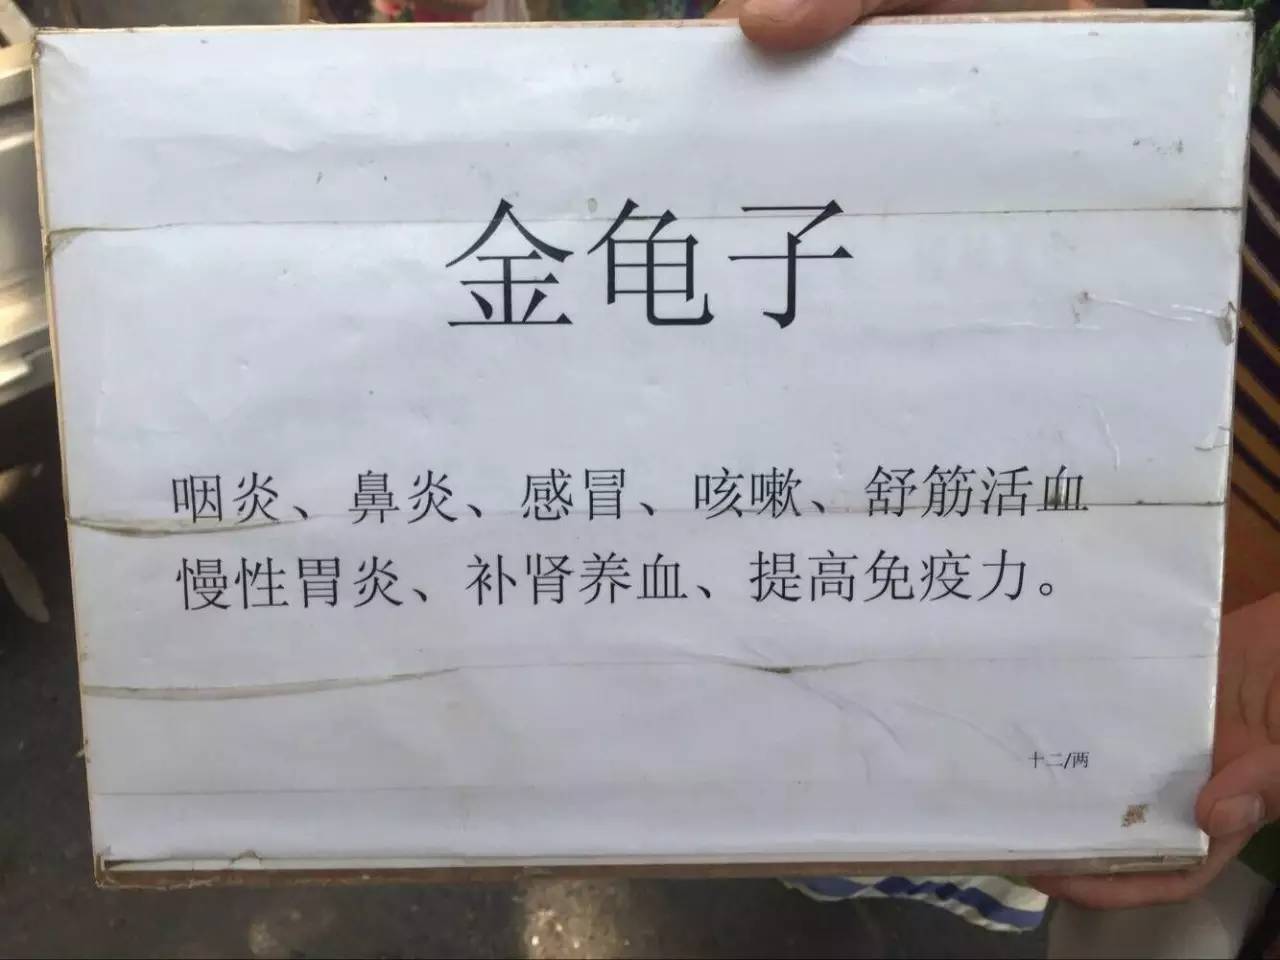 金龟子
咽炎、鼻炎、感冒、咳嗽、舒筋活血
慢性胃炎、补肾养血、提高免疫力。
十二/两